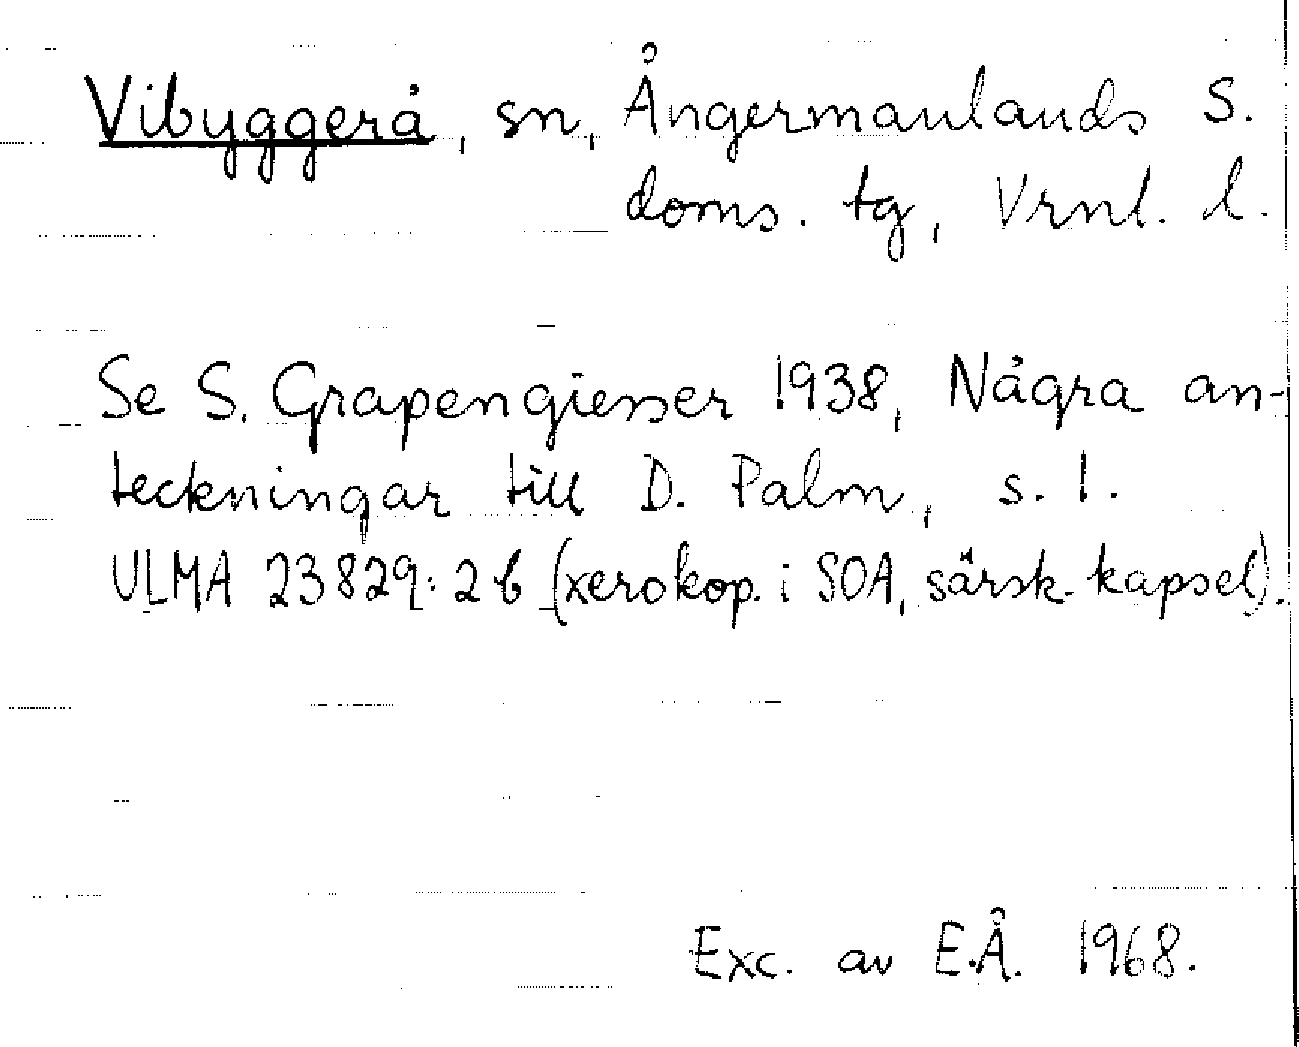 Vibyggerå, sn, Ångermanlands S.
doms. tg, Vrnl. l.
Se S. Grapengiesser 1938, Några an-
teckningar till D. Palm, s. 1.
ULMA 23829:2b (xerokop. i SOA, särsk. kapsel).
Exc. av E.Å. 1968.